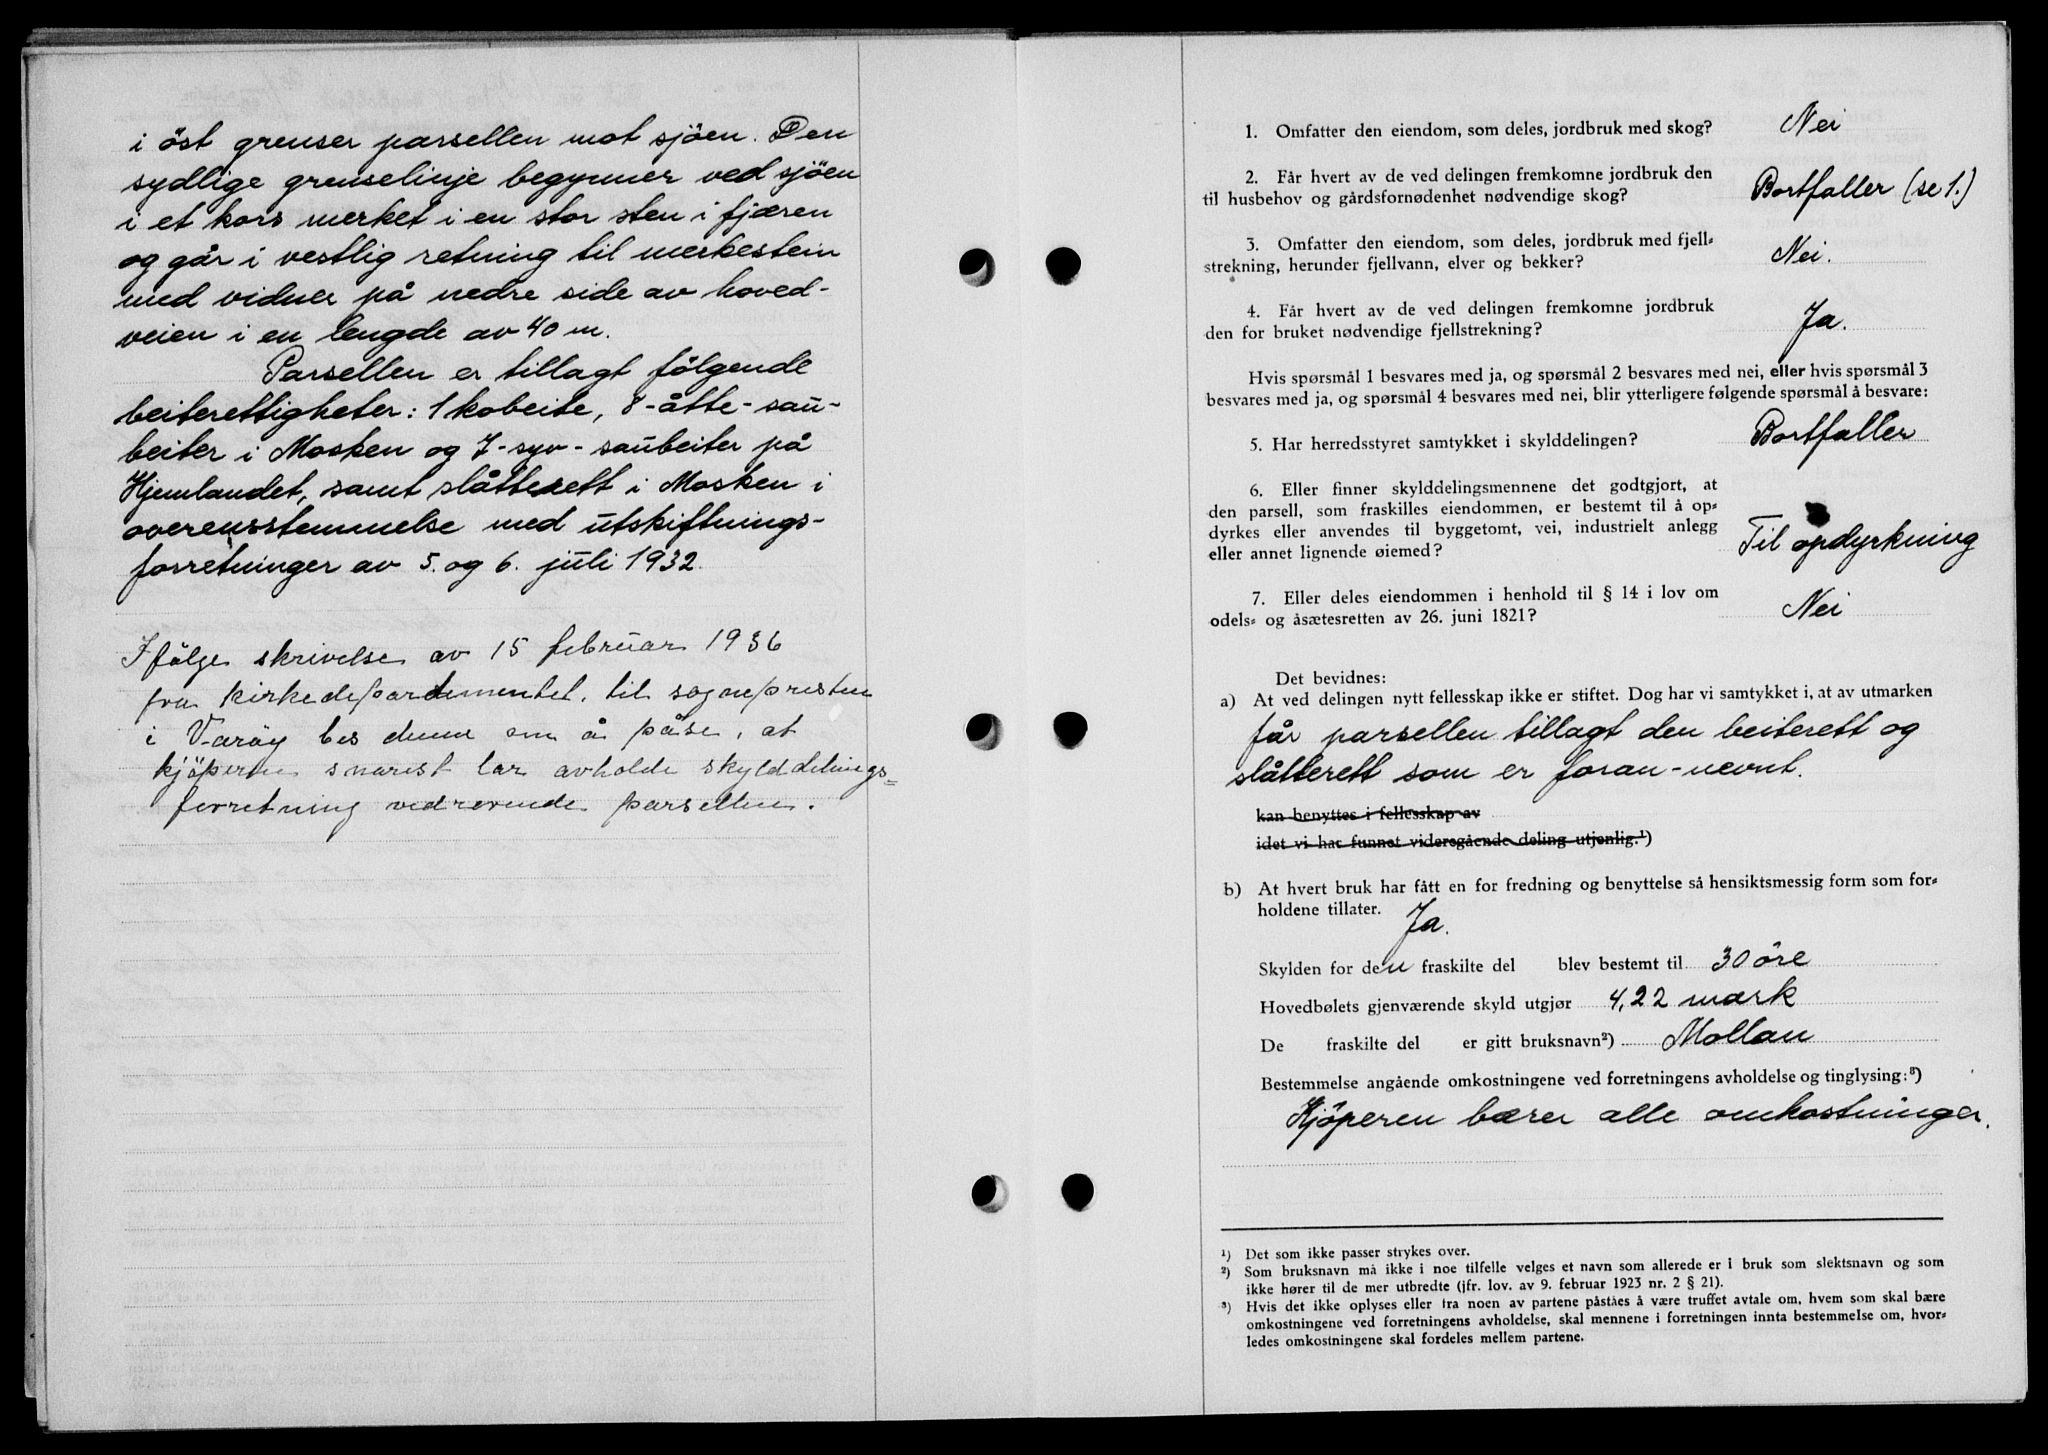 i öst grenser parsellen mot sjöen. Den
sydlige grenselinje begynner ved sjöen
i et kors merket i en stor sten i fjæren
og går i vestlig retning til merkestein
med vidner på nedre side av hoved-
veien i en lengde av 40 m.
Parsellen er tillagt fölgende
beiterettigheter: 1 kobeite, 8-åtte-sau-
beiter i Mosken og 7-syv-saubeiter på
Hjemlandet, samt slåtterett i Mosken i
overensstemmelse med utskiftnings-
forretninger av 5. og 6. juli 1932.
Ifölge skrivelse av 15 februar 1936
fra kirkedepartementet, til sognepresten
iVæröy bes denne om å påse, at
kjöperne snarest lar avholde skylddelnings=
forretning vedrörende parsellen.
1. Omfatter den eiendom, som deles, jordbruk med skog? Nei
2. Får hvert av de ved delingen fremkomne jordbruk den
til husbehov og gårdsfornødenhet nødvendige skog? Bortfaller (se 1.)
3. Omfatter den eiendom, som deles, jordbruk med fjell=
strekning, herunder fjellvann, elver og bekker? Nei.
4. Får hvert av de ved delingen fremkomne jordbruk
den for bruket nødvendige fjellstrekning? Ja.
Hvis spørsmål 1 besvares med ja, og spørsmål 2 besvares med nei, eller hvis spørsmål 3
besvares med ja, og spørsmål 4 besvares med nei, blir ytterligere følgende spørsmål å besvare:
5. Har herredsstyret samtykket i skylddelingen? Bortfaller
6. Eller finner skylddelingsmennene det godtgjort, at
den parsell, som fraskilles eiendommen, er bestemt til å op=
dyrkes eller anvendes til byggetomt, vei, industrielt anlegg
eller annet lignende øiemed? Til opdyrkning
7. Eller deles eiendommen i henhold til § 14 i lov om
odels= og åsætesretten av 26. juni 1821? Nei
Det bevidnes:
a) At ved delingen nytt fellesskap ikke er stiftet. Dog har vi samtykket i, at av utmarken
får parsellen tillagt den beiterett og
slåtterett som er foran-nevnt.
kan benyttes i fellesskap av
idet vi har funnet videregående deling utjenlig.¹)
b) At hvert bruk har fått en for fredning og benyttelse så hensiktsmessig form som for=
holdene tillater. Ja.
Skylden for den fraskilte del blev bestemt til 30 öre
Hovedbølets gjenværende skyld utgjør 4,22 mark
De fraskilte del er gitt bruksnavn²) Mollan
Bestemmelse angående omkostningene ved forretningens avholdelse og tinglysing:³)
Kjöperen bærer alle omkostninger.
¹) Det som ikke passer strykes over.
²) Som bruksnavn må ikke i noe tilfelle velges et navn som allerede er i bruk som slektsnavn og som
ikke hører til de mer utbredte (jfr. lov. av 9. februar 1923 nr. 2 § 21).
³) Hvis det ikke oplyses eller fra noen av partene påståes å være truffet avtale om, hvem som skal bære
omkostningene ved forretningens avholdelse, skal mennene i forretningen innta bestemmelse om, hvor=
ledes omkostningene skal fordeles mellem partene.